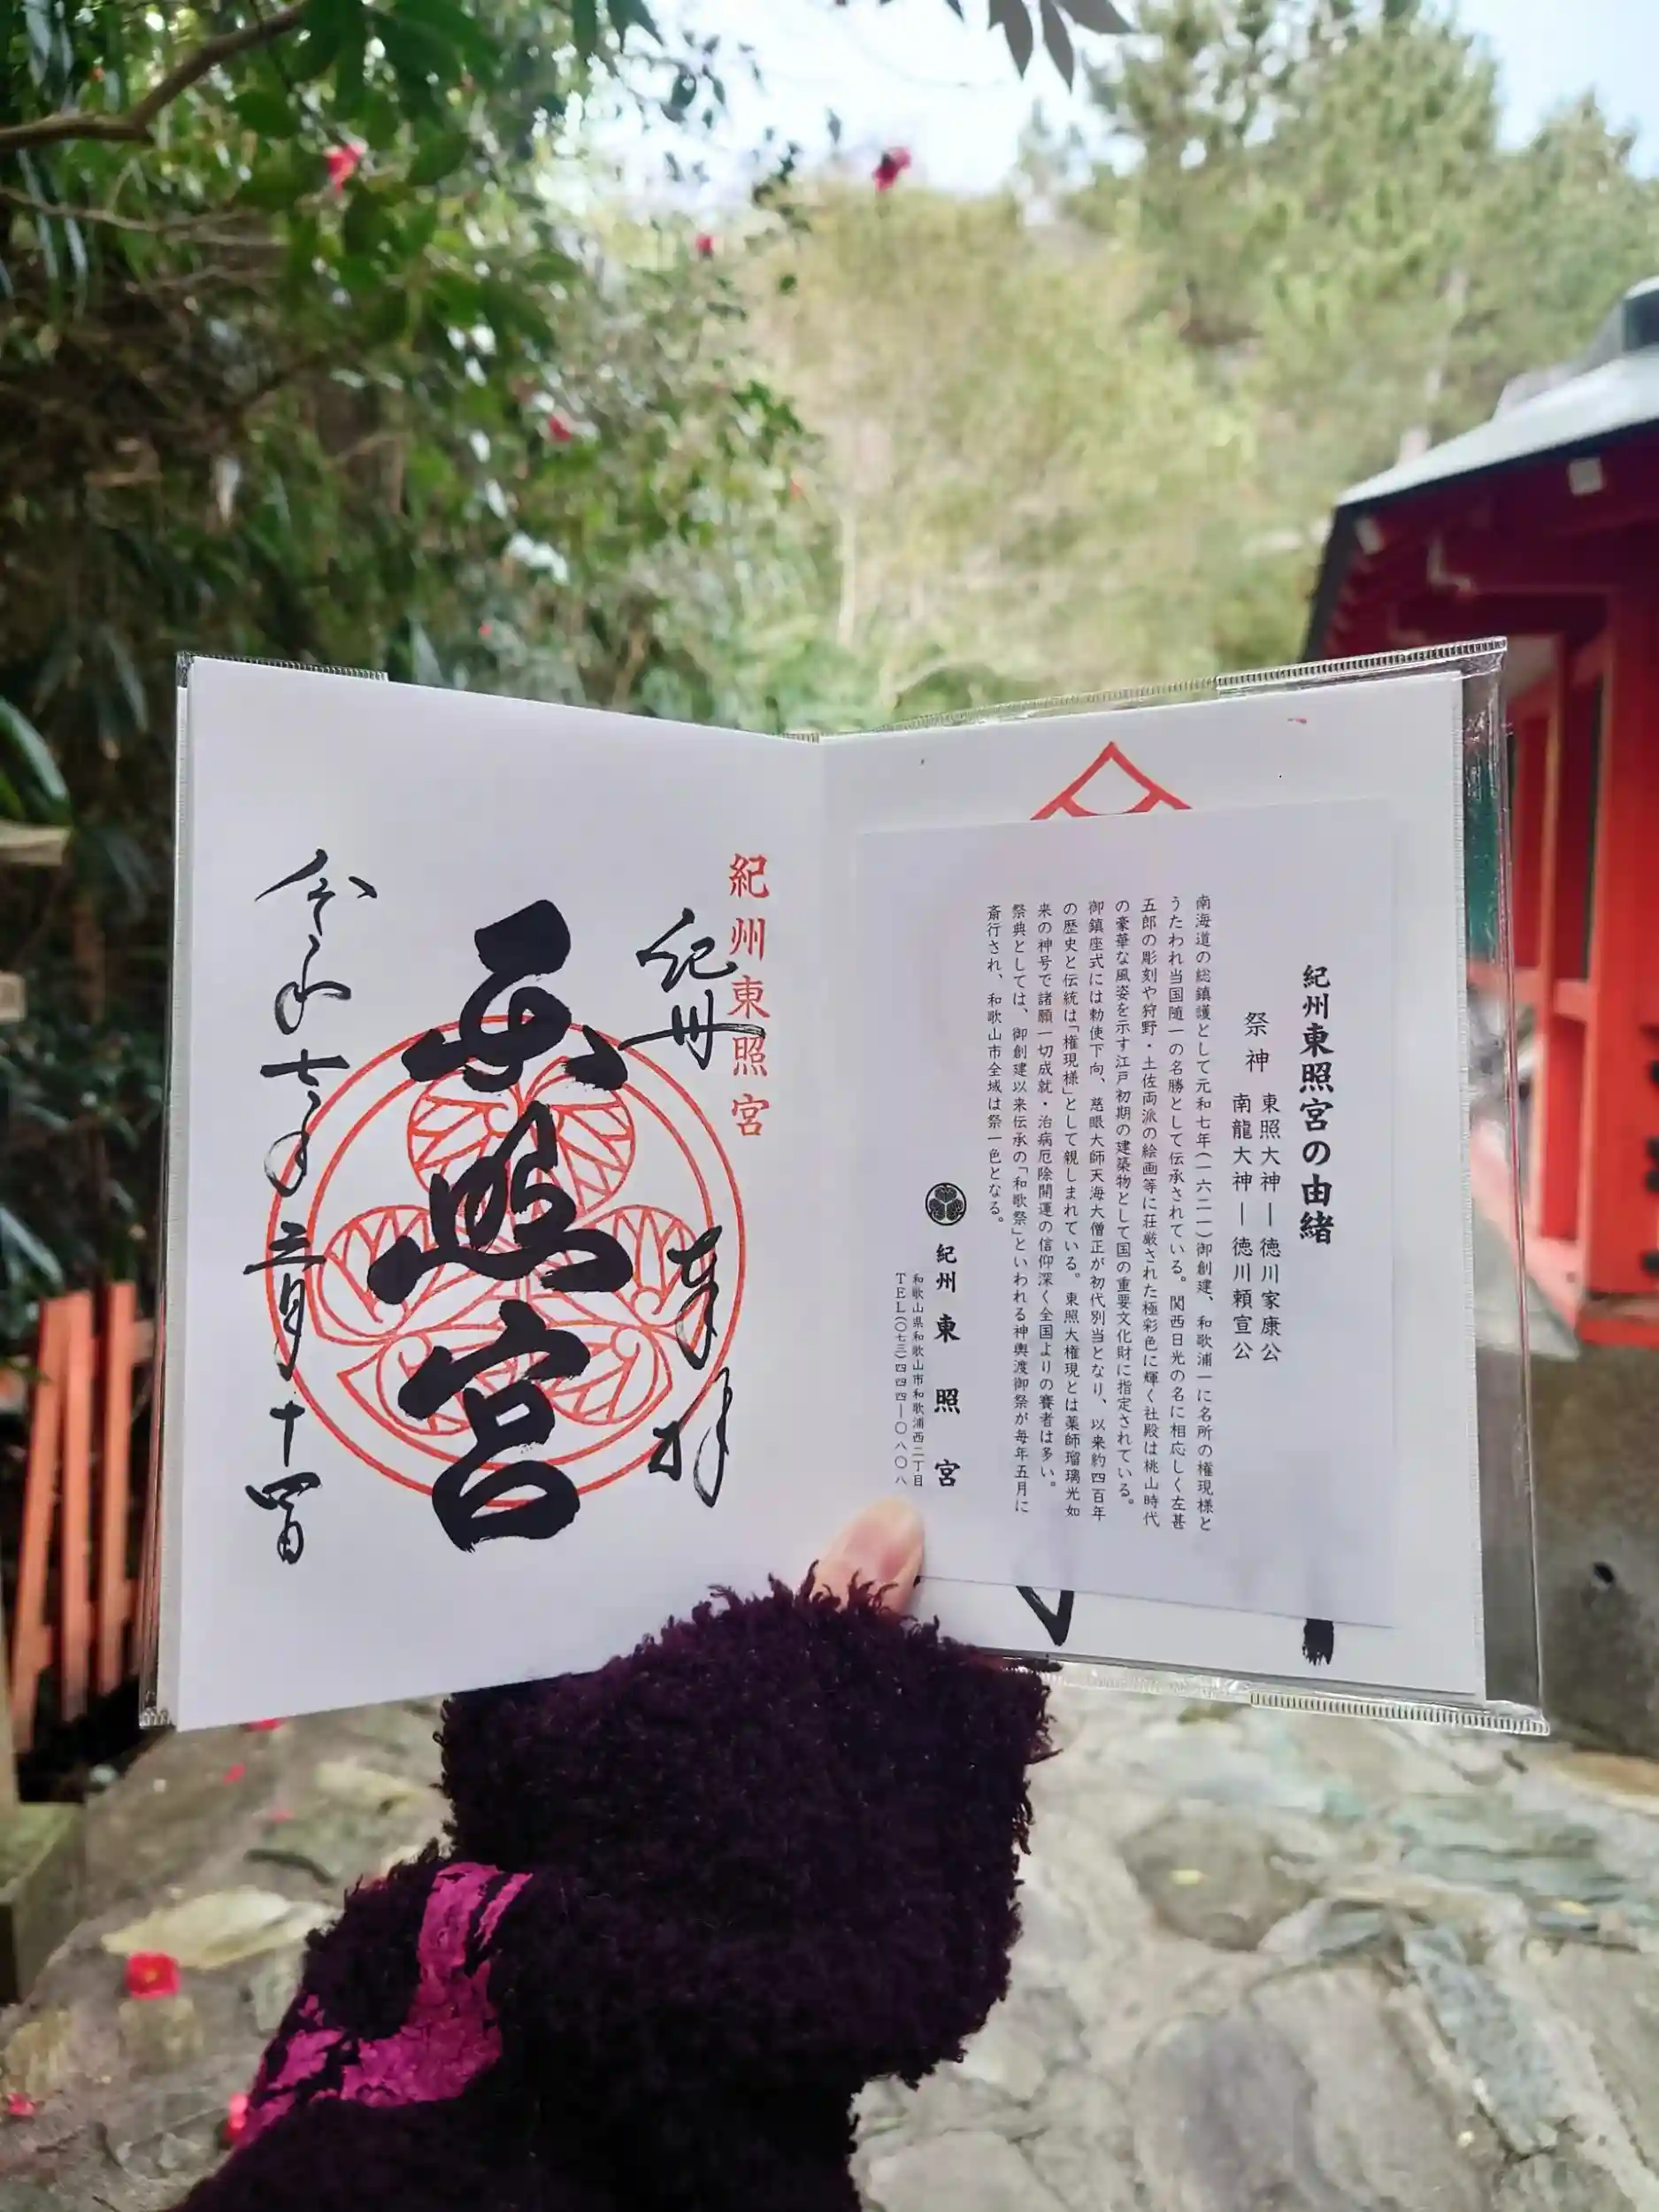 紀州東照宮の由緒
祭神
東照大神―徳川家康公
南龍大神―徳川頼宣公
南海道の総鎮護として元和七年(一六二一)御創建、和歌浦一に名所の権現様と
うたわれ当国随一の名勝として伝承されている。関西日光の名に相応しく左甚
五郎の彫刻や狩野・土佐両派の絵画等に荘厳された極彩色に輝く社殿は桃山時代
の豪華な風姿を示す江戸初期の建築物として国の重要文化財に指定されている。
御鎮座式には勅使下向、慈眼大師天海大僧正が初代別当となり、以来約四百年
の歴史と伝統は「権現様」として親しまれている。東照大権現とは薬師瑠璃光如
来の神号で諸願一切成就・治病厄除開運の信仰深く全国よりの賽者は多い。
祭典としては、御創建以来伝承の「和歌祭」といわれる神輿渡御祭が毎年五月に
斎行され、和歌山市全域は祭一色となる。
紀州東照宮
和歌山県和歌山市和歌浦西二丁目
TEL(〇七三)四四四―〇八〇八
紀州東照宮
紀州
奉拝
東照宮
令和七年三月十四日